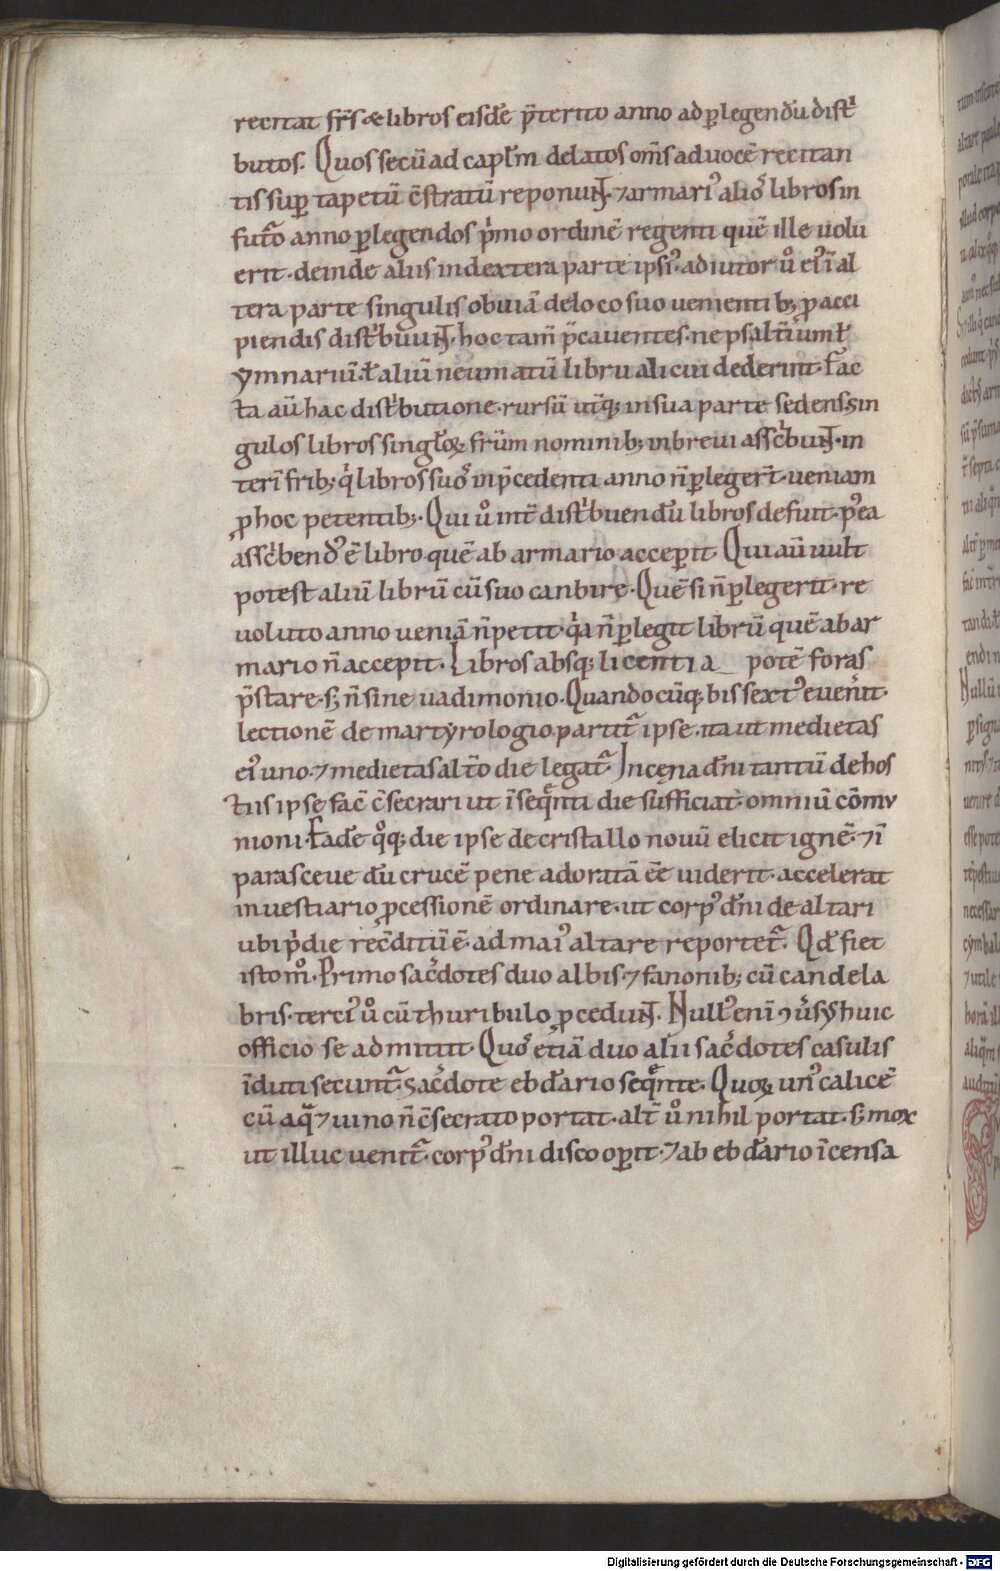 recitat fr̅s ⁊ libros eisdē p̄terito anno ad ꝑlegendū distⁱ
butos. Quos secū ad capłm delatos om̅s ad uocē recitan
tis suꝑ tapetū c̄stratū reponuN̄T. ⁊ armariꝰ alioˢ libros in
futo᷑ anno ꝑlegendos pⁱmo ordinē regenti quē ille uolu
erit. deinde aliis in dextera parte ipsiꝰ. adiutor uº eiꝰ ī al
tera parte singulis obuiā de loco suo uenientibꝫ ꝓ acci
piendis distⁱbuuN̄T. hoc tam̄ p̄cauentes. ne psalt̄iū ⁊ımł
ymnariū. ł aliū neumatū librū alicui dederint. Fac
ta aū hac distⁱbutione. rursū utqꝫ in sua parte sedens sin
gulos libros singłoꝝ frūm nominibꝫ in breui asscⁱbuN̄T. in
terī fr̄ibꝫ qⁱ libros suoˢ in p̄cedenti anno n̄ ꝑlegert̄. ueniam
ꝓ hoc petentibꝫ. Qui uº int̄ distⁱbuendū libros defuit. pꝰea
asscⁱbendꝰ ē libro quē ab armario acceꝑit. Qui aū uult
potest aliū librū cū suo canbire. Quē si n̄ ꝑlegerit. re
uoluto anno ueniā n̄ petit. qⁱa n̄ ꝑlegit librū quē ab ar
mario n̄ accepit. Libros absqꝫ licentia potē foras
p̄stare. sꝫ n̄ sine uadimonio. Quandocūqꝫ bissextꝰ euenit.
lectionē de martyrologio partit᷑ ipse. ita ut medietas
eiꝰ uno. ⁊ medietas alto᷑ die legat᷑. In cęna dn̄i tantū de hos
tiis ipse fac̄ c̄secrari ut ī seqͤnti die sufficiat omniū cōmu
nioni. Eadē qºqꝫ die ipse de cristallo nouū elicit ignē. ⁊ ī
parasceue dū crucē pene adoratā ēē uiderit. accelerat
in uestiario ꝓcessionē ordinare. ut corpꝰ dn̄i de altari
ubi pⁱdie rec̄ditū ē. ad maiꝰ altare reportet᷑. Qđ fiet
isto mº. Primo sac̄dotes duo albis. ⁊ fanonibꝫ cū candela
bris. terciꝰ uº cū thuribulo ꝓceduN̄T. Nullꝰ enī ꝯuˢsꝰ huic
officio se admittit. Quoˢ etiā duo alii sac̄dotes casulis
īduti secunt᷑. sac̄dote ebdario seqͤnte. Quoꝝ unꝰ calicē
cū aqͣ ⁊ uino n̄ c̄secrato portat. alt̄ uº nihil portat. sꝫ mox
ut illuc uenit᷑. corpꝰ dn̄i disco oꝑit. ⁊ ab ebdario īcensa
Digitalisierung gefördert durch die Deutsche Forschungsgemeinschaft - DFG